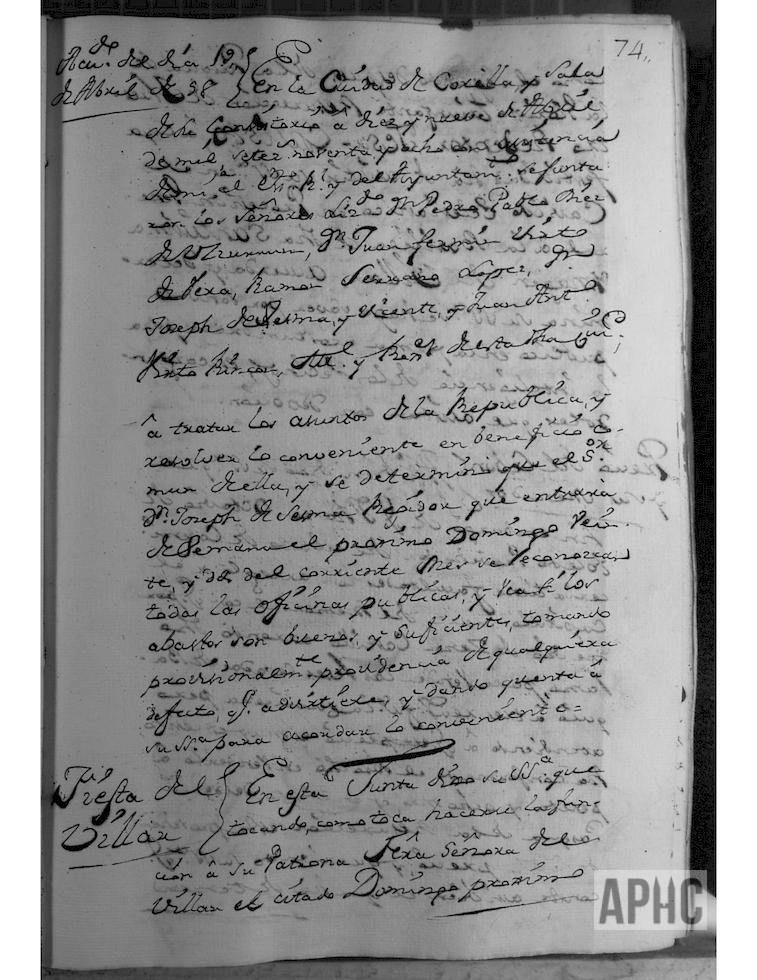 74,,
Acu.do del dia 19,
de Abril de 98
En la Ciudad de Corella, y Sala
de su Consistorio a diez y nueve de Abril
de mil, setec.s noventa y ocho con asistencia
de mi el Ess.no R.l y del Ayuntam.to se junta
ron los Señores Liz.do D.n Pedro Pablo
de D.n Juan fermin Virto
de Vera, Ramon Serrano Lopez, D.n
Joseph de Sesma, y Vicente, y Juan Ant.o
Pinto Rincon, Alc.l y Reg.s de esta dha Ciu.d,
â tratar los asuntos de la Republica, y
resolver lo conveniente en beneficio co-
mun de ella, y se determinò que el S.or
D.n Joseph de Sesma Regidor que entrará
de Semana el proximo Domingo Vein-
te, y dos del corriente Mes se reconozcan
todas las oficinas publicas, y vea si los
abastos son buenos, y suficientes, tomando
provisionalm.te providencia de qualquiera
defecto, q.e advirtiere, y dando quenta á
su SS.a para acordar lo conveniente=
Fiesta del
Villar
En esta Junta dixo su SS.a que
tocando, como toca hacerse la fun-
ción â su Patrona Ntra Señora del
Villar el citado Domingo proximo
APHC